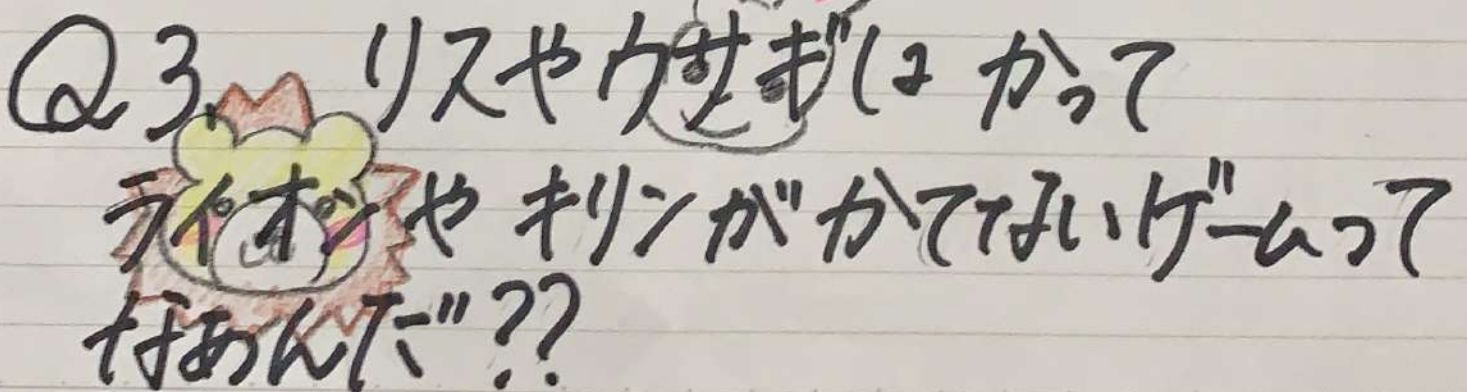 Q3、リスやウサギは かって
ライオンや キリンが かててないゲームって
なあんだ??